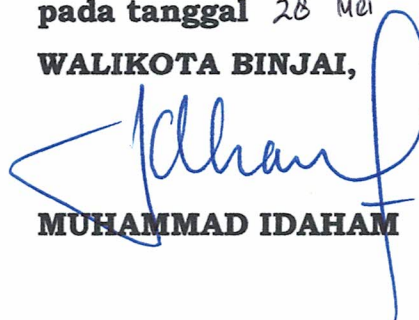 pada tanggal 28 Mei
WALIKOTA BINJAI,
MUHAMMAD IDAHAM